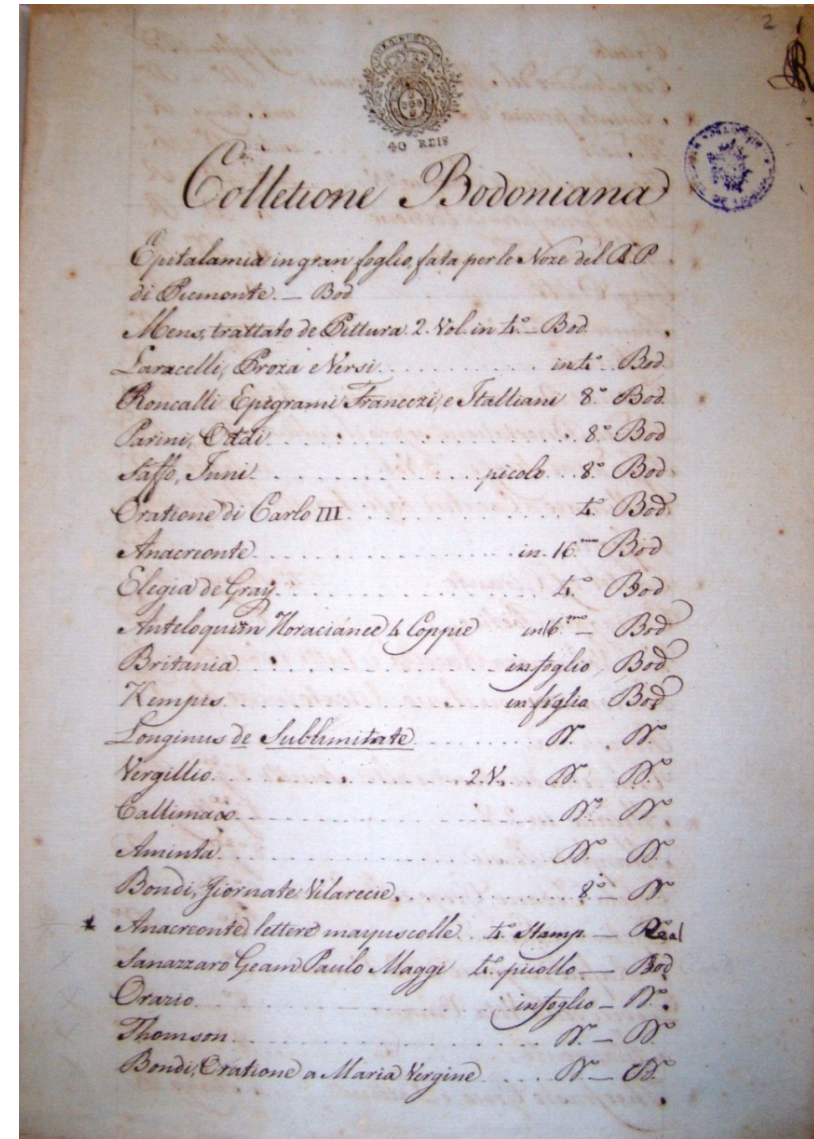 2
40 REIS
Colletione Bodoniana
Epitalamia in gran foglio, fata per le Noze del R. P.
di Piemonte. — Bod
Mens, trattato de Pittura. 2. Vol. in 4.º — Bod
Laracelli, Proza e Versi in 4.º Bod
Roncalli Epigrami Francezi, e Italliani 8.º Bod.
Parini, Ottdi 8.º Bod
Saffo, Inni picolo 8.º Bod
Oratione di Carlo III 4.º Bod.
Anacreonte in 16.mo Bod
Elegia de Gray 4.º Bod
Anteloquim Horacianee 4 Coppie in 16.mo — Bod
Britania in foglio Bod
Kempis in foglia Bod
Longinus de Sublimitate Dº Dº
Vergillio 2.V. Dº Dº
Callimaco Dº Dº
Aminta Dº Dº
Bondi, Giornate Vilarecie 8.º — Dº
* Anacreonte lettere mayuscolle 4.º Stamp. — Real
Sanazzaro Geam Paulo Maggi 4.º picollo — Bod
Orazio in foglio — Dº
Thomson Dº — Dº
Bondi, Oratione a Maria Vergine Dº — Dº